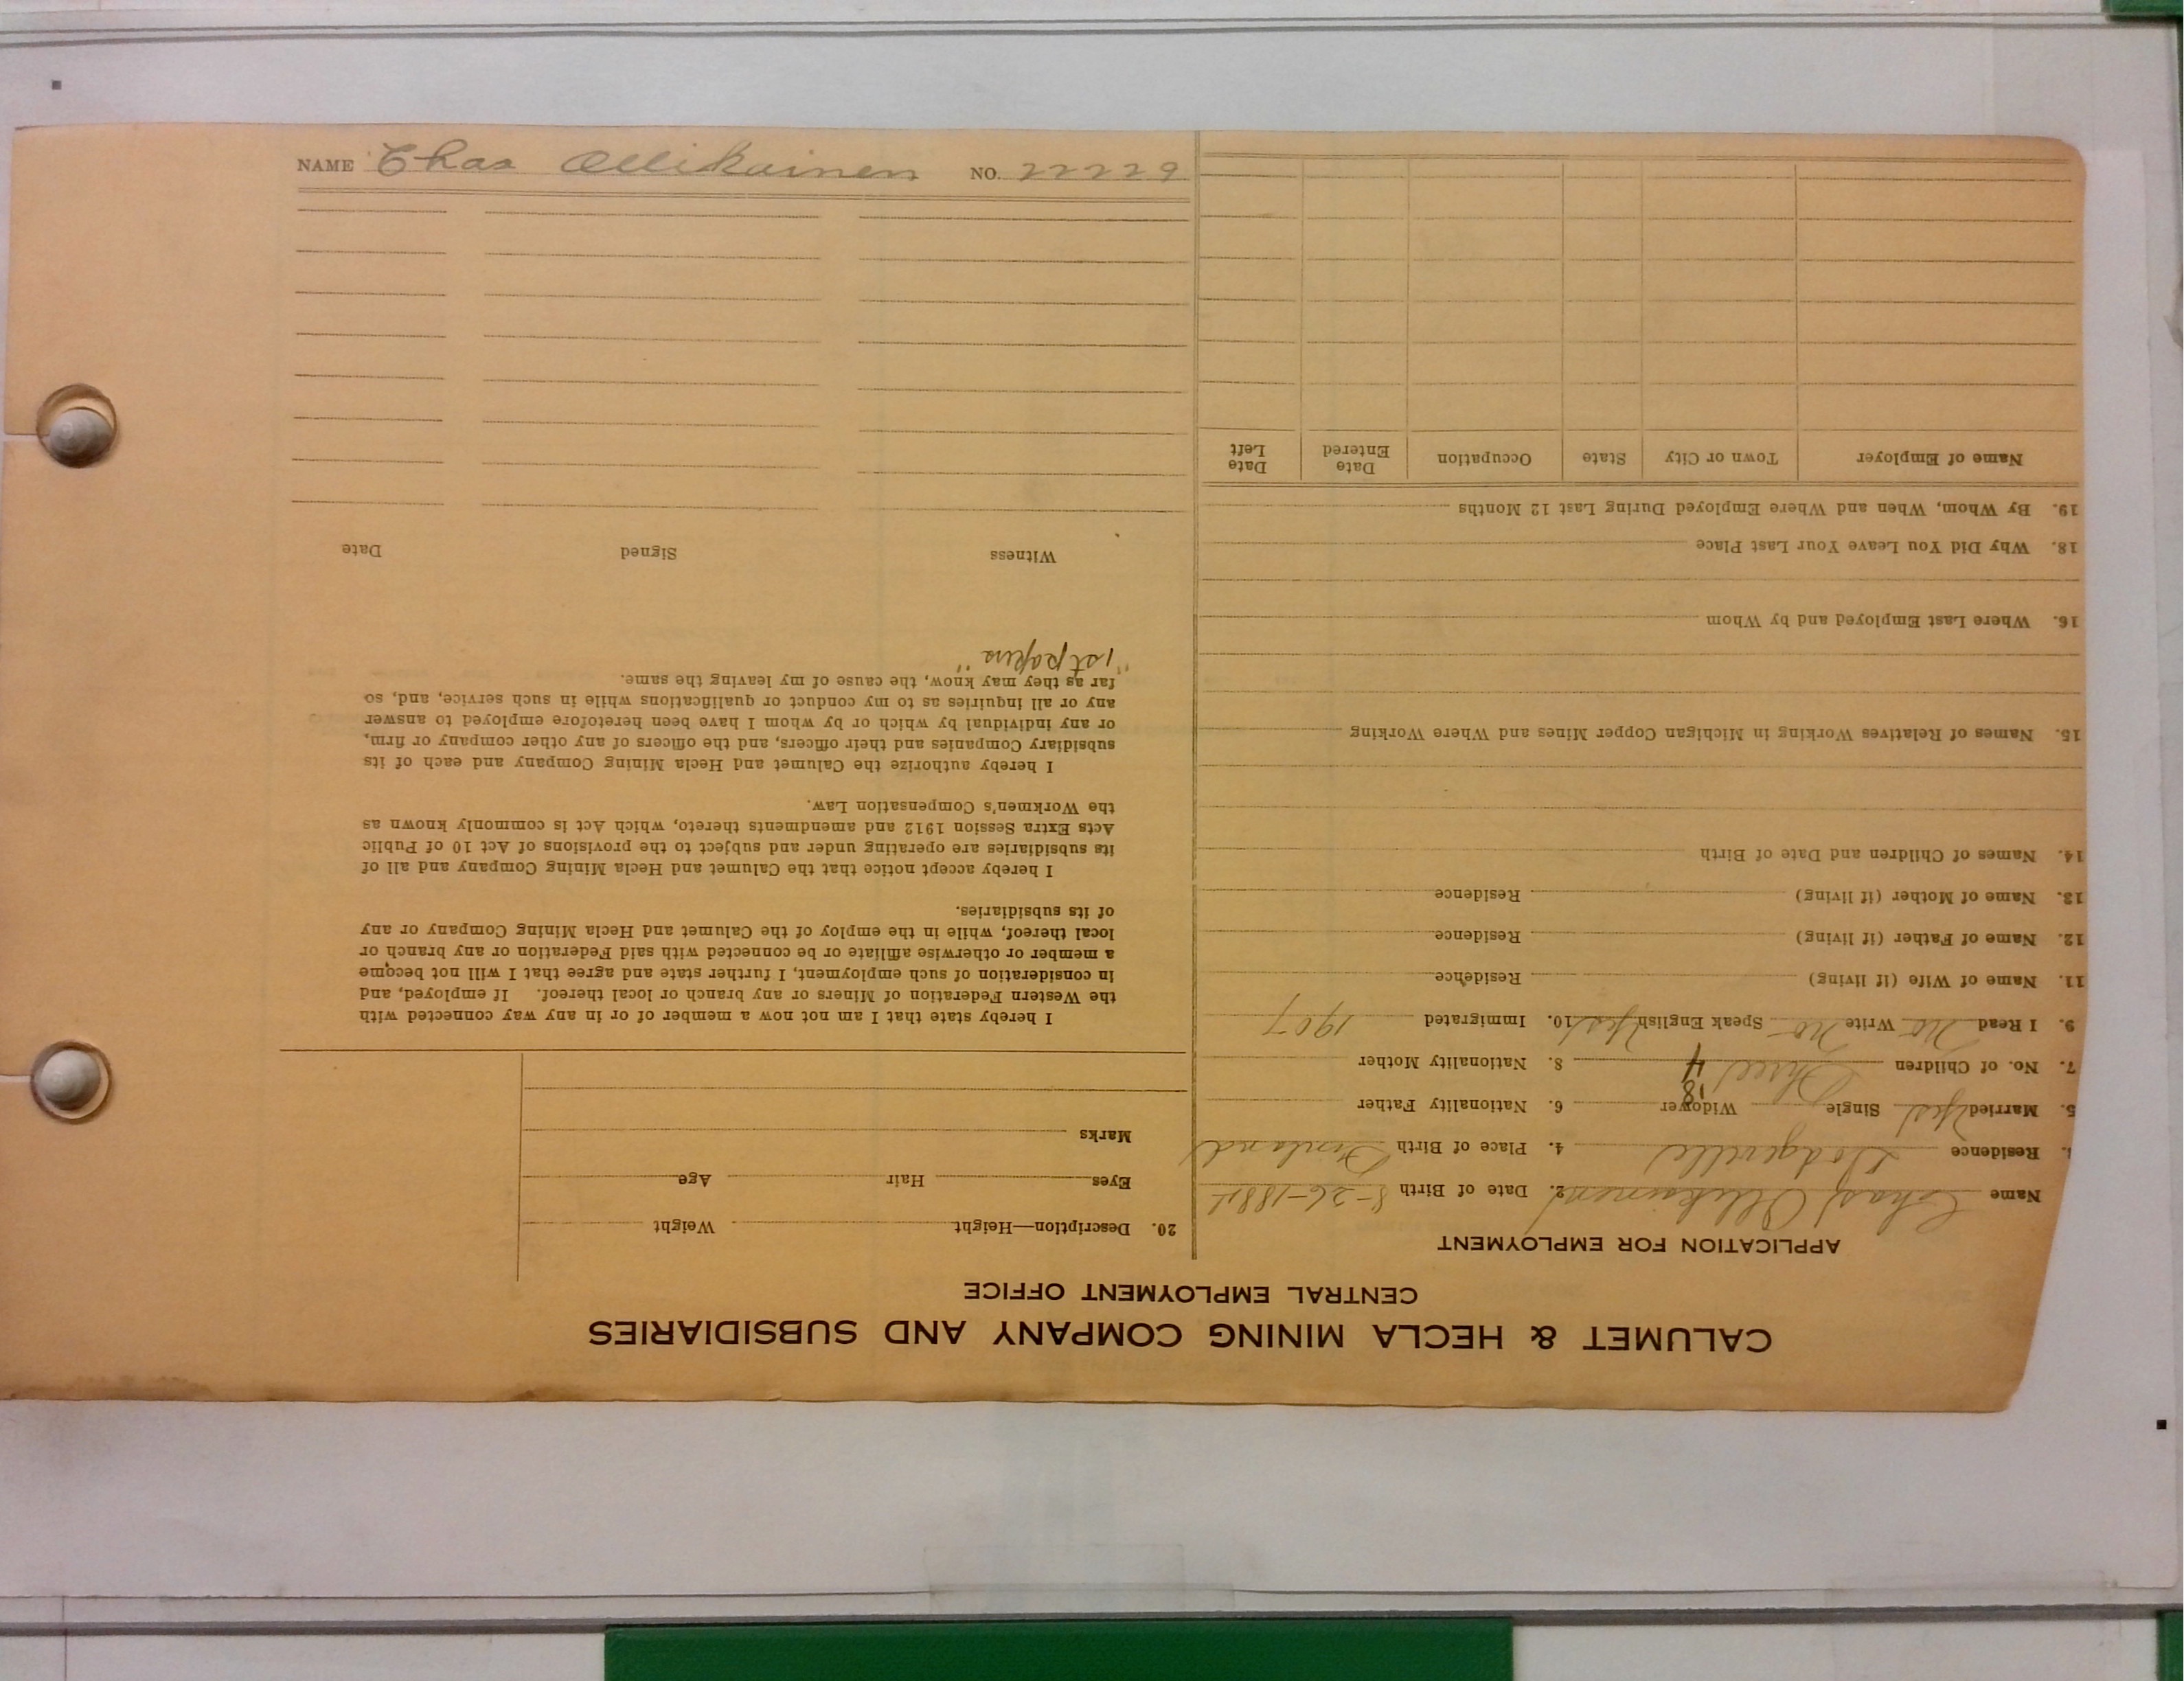 CALUMET & HECLA MINING COMPANY AND SUBSIDIARIES
CENTRAL EMPLOYMENT OFFICE
APPLICATION FOR EMPLOYMENT
Name Chas Ollikainen 2. Date of Birth 8-26-1884
Residence Dodgeville 4. Place of Birth Finland
5. Married Yes Single Widower 6. Nationality Father
18
7. No. of Children Three 4 8. Nationality Mother
9. I Read No Write No Speak English Yes 10. Immigrated 1907
11. Name of Wife (if living) Residence
12. Name of Father (if living) Residence
13. Name of Mother (if living) Residence
14. Names of Children and Date of Birth
15. Names of Relatives Working in Michigan Copper Mines and Where Working
16. Where Last Employed and by Whom
18. Why Did You Leave Your Last Place
19. By Whom, When and Where Employed During Last 12 Months
Name of Employer Town or City State Occupation Date Entered Date Left
20. Description—Height Weight
Eyes Hair Age
Marks
I hereby state that I am not now a member of or in any way connected with
the Western Federation of Miners or any branch or local thereof. If employed, and
in consideration of such employment, I further state and agree that I will not become
a member or otherwise affiliate or be connected with said Federation or any branch or
local thereof, while in the employ of the Calumet and Hecla Mining Company or any
of its subsidiaries.
I hereby accept notice that the Calumet and Hecla Mining Company and all of
its subsidiaries are operating under and subject to the provisions of Act 10 of Public
Acts Extra Session 1912 and amendments thereto, which Act is commonly known as
the Workmen's Compensation Law.
I hereby authorize the Calumet and Hecla Mining Company and each of its
subsidiary Companies and their officers, and the officers of any other company or firm,
or any individual by which or by whom I have been heretofore employed to answer
any or all inquiries as to my conduct or qualifications while in such service, and, so
far as they may know, the cause of my leaving the same.
"1st papers"
Witness Signed Date
NAME Chas Ollikainen NO. 22229